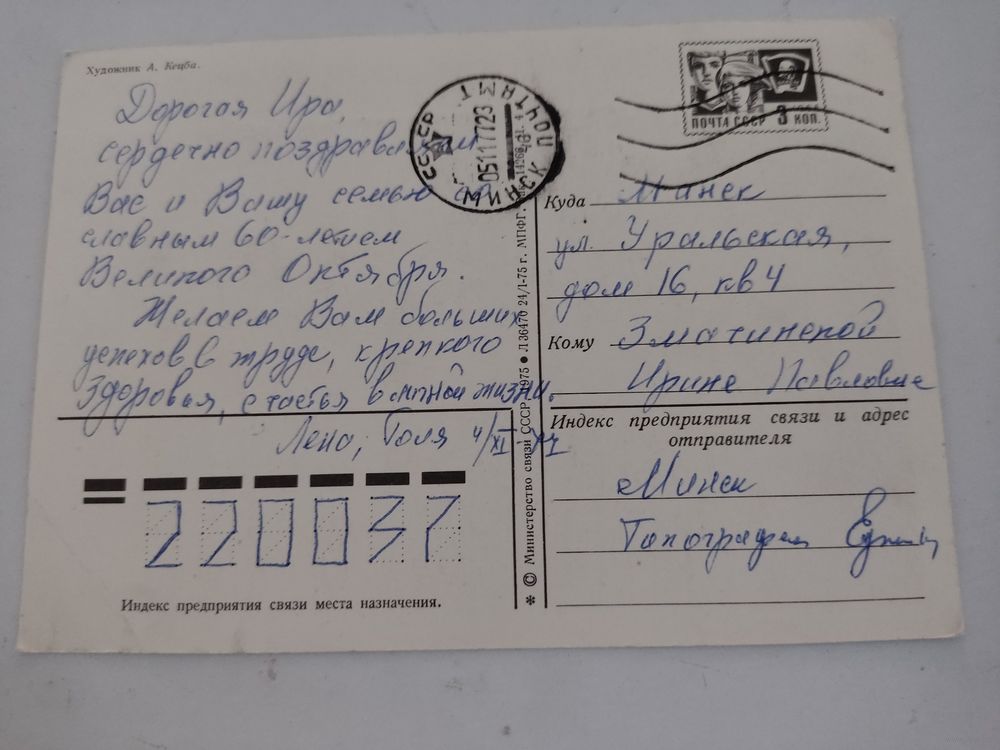 Художник А. Кецба.
Дорогая Ира,
сердечно поздравляем
Вас и Вашу семью со
славным 60-летием
Великого Октября.
Желаем Вам больших
успехов в труде, крепкого
здоровья, счастья в личной жизни.
Лена, Толя 4/XI-77
220037
Индекс предприятия связи места назначения.
* © Министерство связи СССР 1975 • Л36470 24/1-75 г. МПФГ.
СССР
0511 7723
МИНСК ПОЧТАМТ
ПОЧТА СССР 3 КОП.
Куда Минск
ул. Уральская,
дом 16, кв 4
Кому
Ирине Павловне
Индекс предприятия связи и адрес
отправителя
Минск